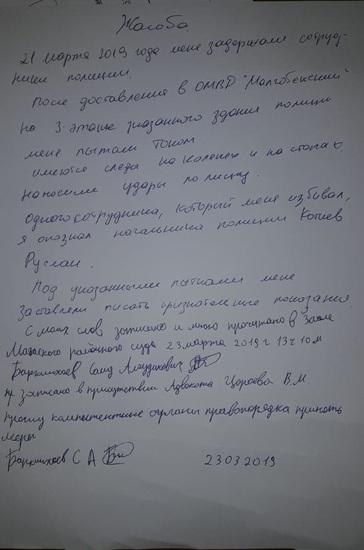 Жалоба
21 марта 2019 года меня задержали сотруд-
ники полиции.
После доставления в ОМВД "Малгобекский"
на 3-этаже указанного здания полиции
меня пытали током
имеются следы на коленях и на стопах
наносили удары по лицу.
Одного сотрудника, который меня избивал,
я опознал начальника полиции Котиев
Руслан.
Под указанными пытками меня
заставляли писать признательные показания.
С моих слов записано и мною прочитано в зале
районного суда 23 марта 2019 г 13ч 10м
Саид
записано в присутствии Адвоката Цороева В.М
Прошу компетентные органы правопорядка принять
меры
С А
23.03 2019